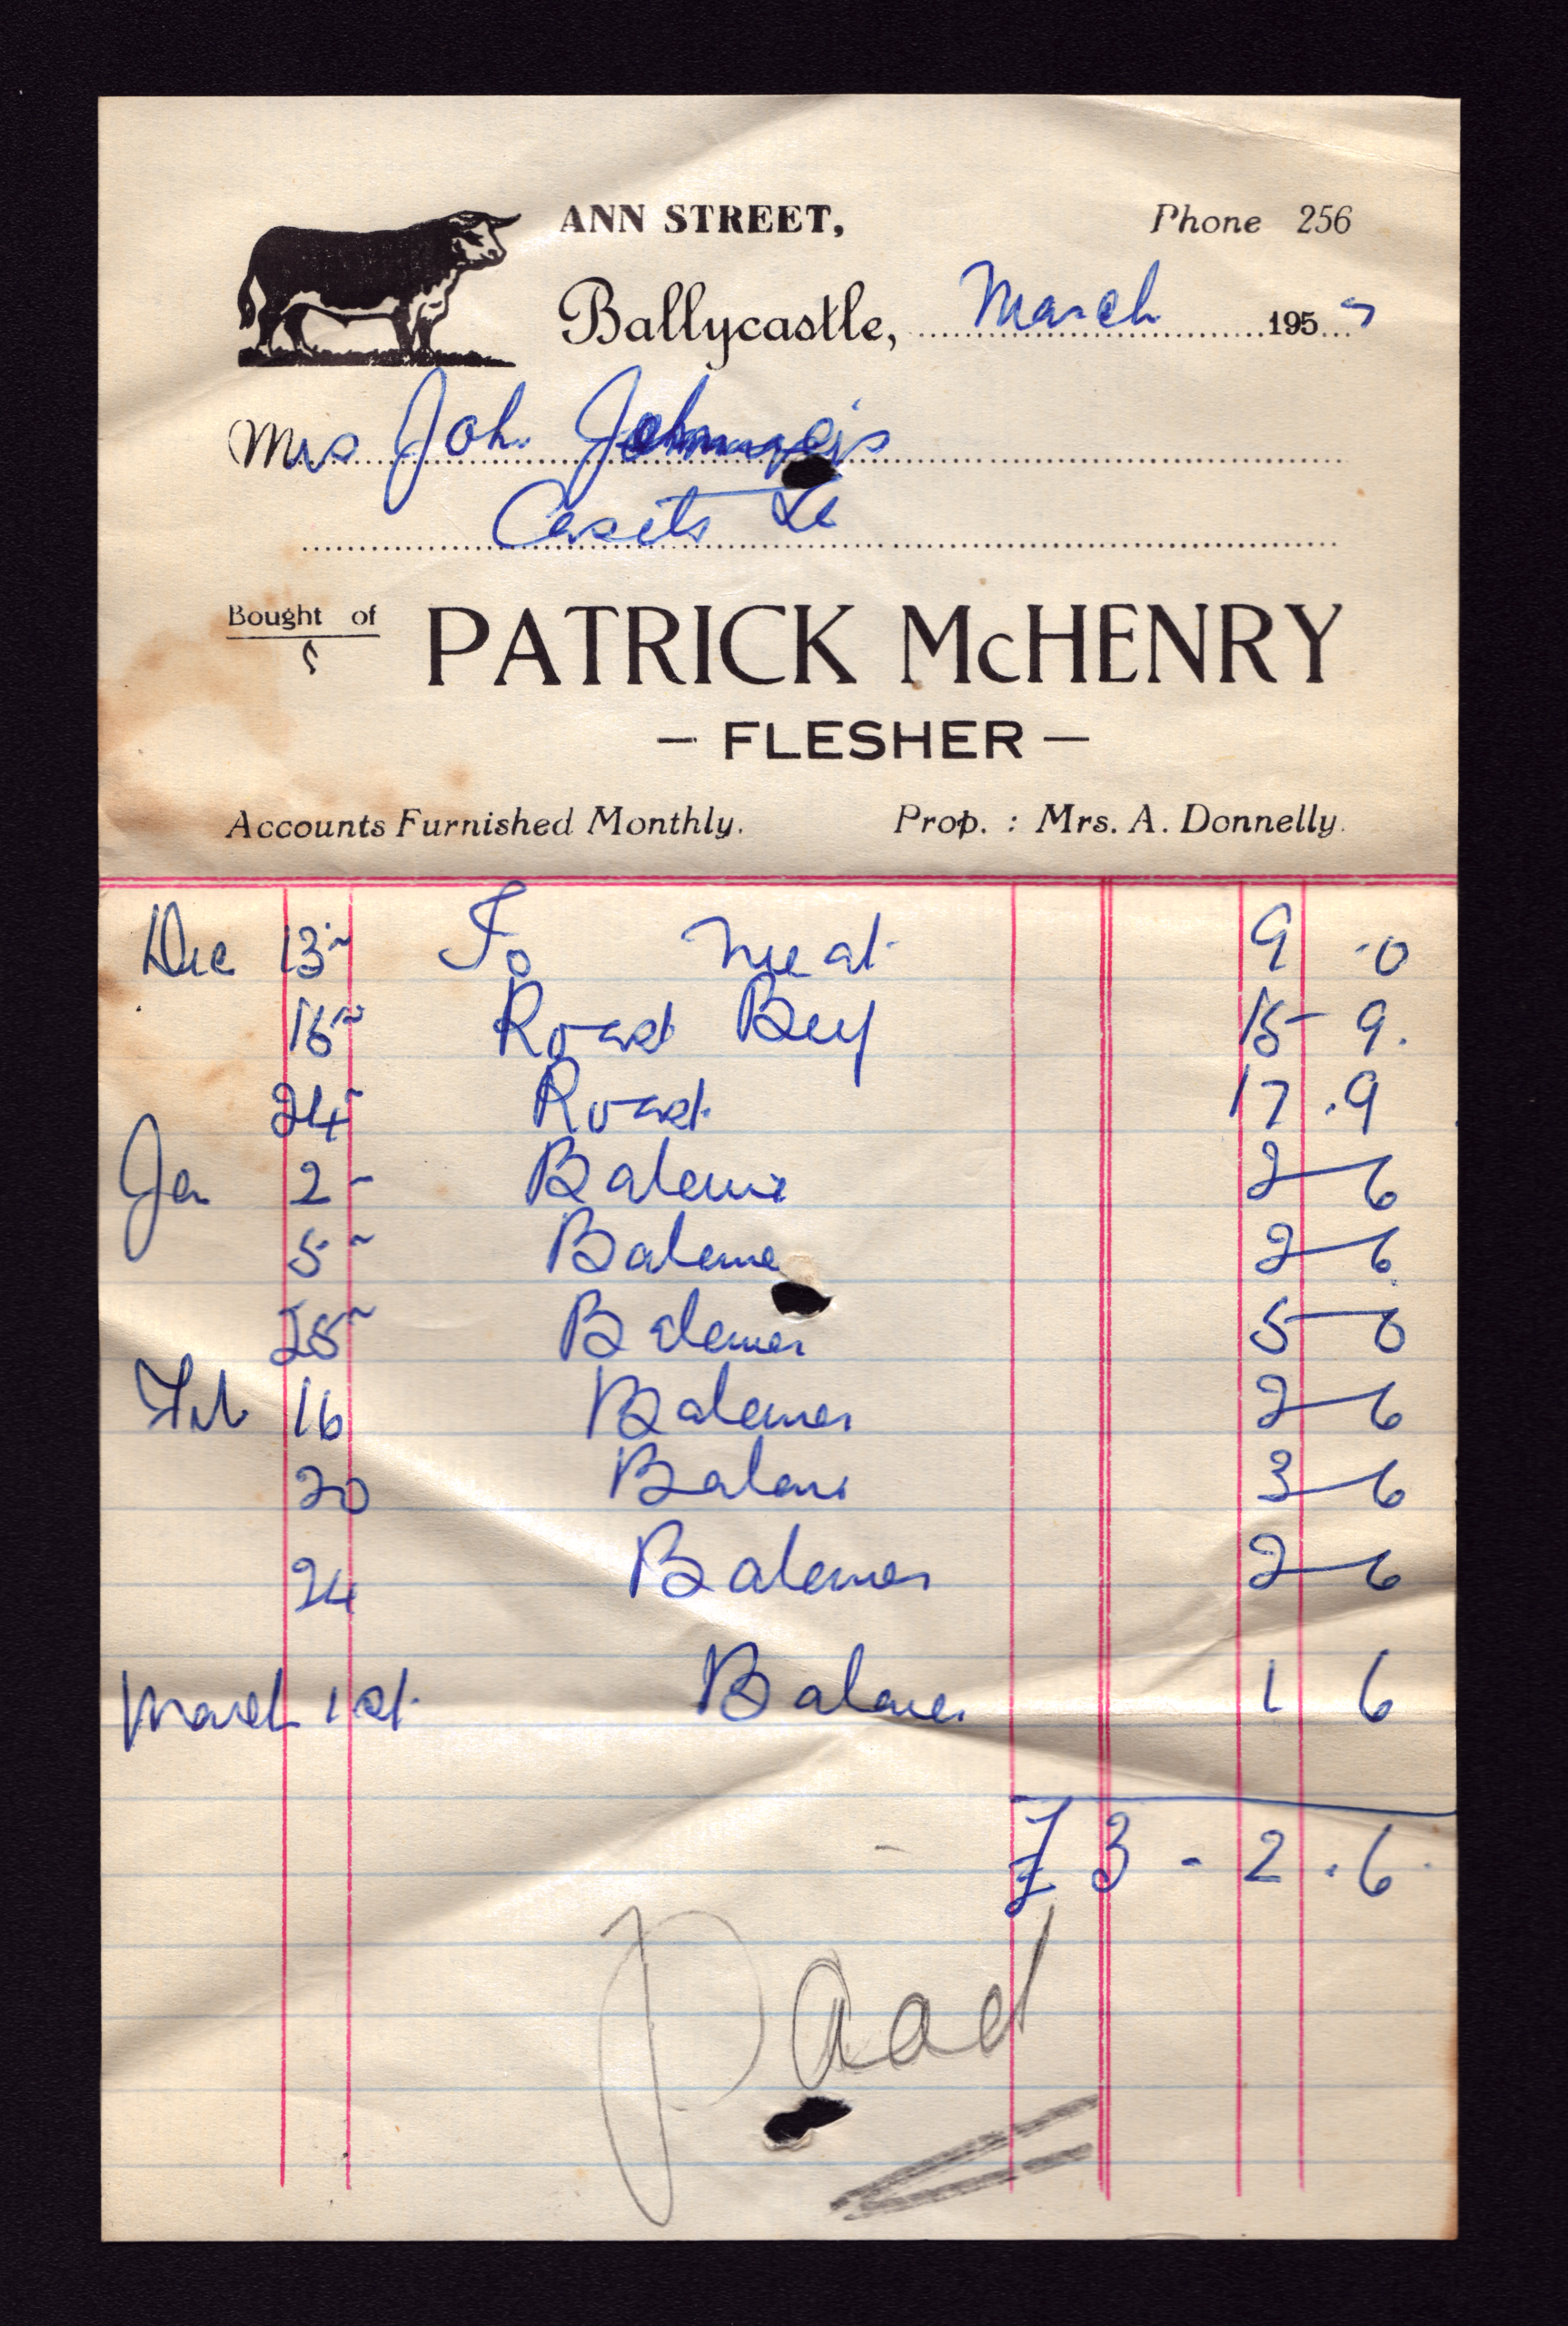 ANN STREET, Phone 256
Ballycastle, March 1957
Mrs John
Bought of PATRICK McHENRY
– FLESHER –
Accounts Furnished Monthly. Prop. : Mrs. A. Donnelly.
Dec 13 To Meat 9 . 0
15 Roast Beef 15 - 9.
24 Roast 17 . 9
Jan 2 - Balance 2 - 6
5 - Balance 2 - 6
25 Balance 5 - 0
Feb 16 Balance 2 - 6
20 Balance 3 - 6
24 Balance 2 - 6
March 1st. Balance 1 6
£ 3 - 2 . 6
Paid